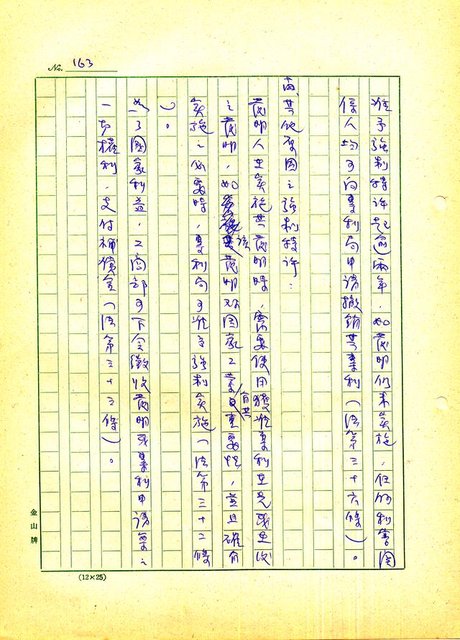 No. 163
准予強制特許起逾兩年，如發明仍未實施，任何利害関
係人均可向專利局申請撤銷其專利（法第三十六條）。
丙、其他原因之強制特許：
發明人在實施其發明時，需要使用獲准專利在先或是次
之發明，如該發明對國家工業具有其重要性，並且確有
實施之必要時，專利局可准予強制實施（法第三十二條
）。
為了國家利益，工商部可下令徵收發明或專利申請案之
一切權利，支付補償金（法第三十三條）。
金山牌
(12×25)